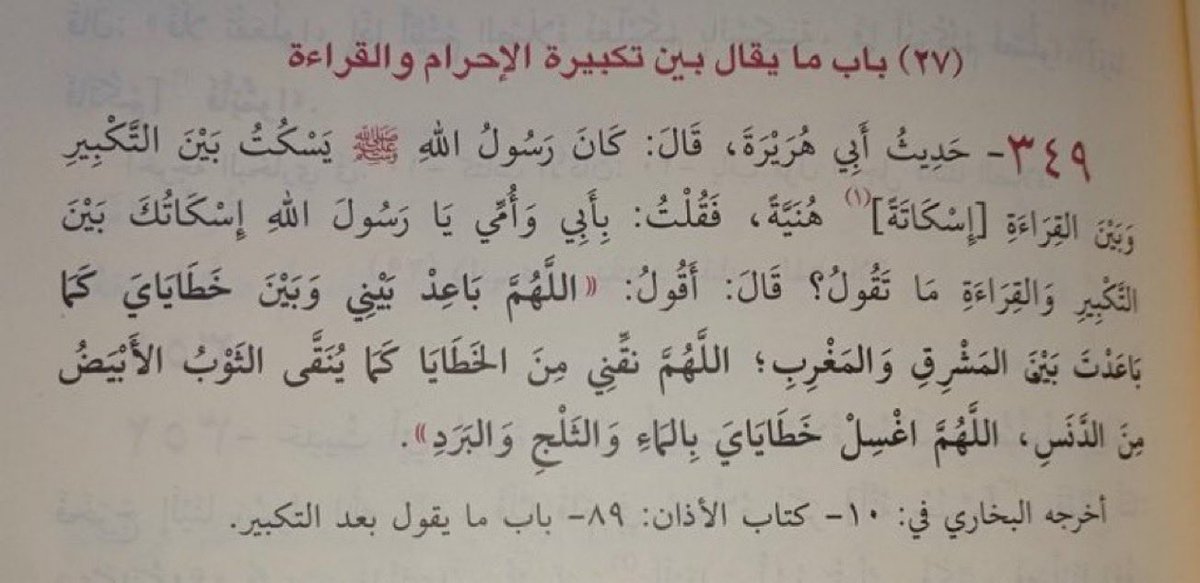 (٢٧) باب ما يقال بين تكبيرة الإحرام والقراءة
٣٤٩- حَدِيثُ أَبِي هُرَيْرَةَ، قَالَ: كَانَ رَسُولُ اللهِ ﷺ يَسْكُتُ بَيْنَ التَّكْبِيرِ
وَبَيْنَ القِرَاءَةِ [إِسْكَاتَةً](١) هُنَيَّةً، فَقُلْتُ: بِأَبِي وَأُمِّي يَا رَسُولَ اللهِ إِسْكَاتُكَ بَيْنَ
التَّكْبِيرِ وَالقِرَاءَةِ مَا تَقُولُ؟ قَالَ: أَقُولُ: «اللَّهُمَّ بَاعِدْ بَيْنِي وَبَيْنَ خَطَايَايَ كَمَا
بَاعَدْتَ بَيْنَ المَشْرِقِ وَالمَغْرِبِ؛ اللَّهُمَّ نَقِّنِي مِنَ الخَطَايَا كَمَا يُنَقَّى الثَّوْبُ الأَبْيَضُ
مِنَ الدَّنَسِ، اللَّهُمَّ اغْسِلْ خَطَايَايَ بِالمَاءِ وَالثَّلْجِ وَالبَرَدِ».
أخرجه البخاري في: ١٠- كتاب الأذان: ٨٩- باب ما يقول بعد التكبير.